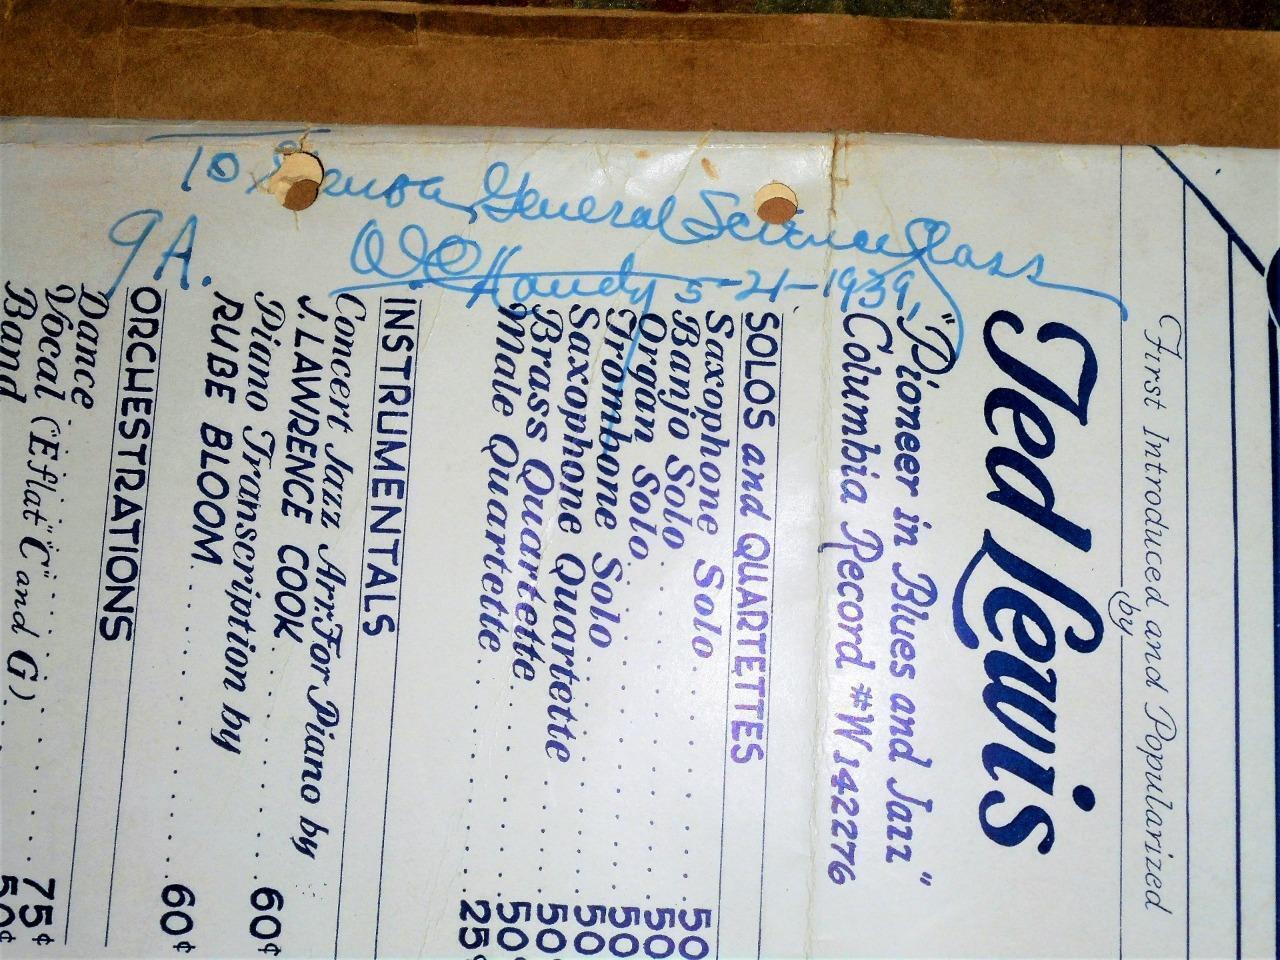 First Introduced and Popularized
by
Ted Lewis
"Pioneer in Blues and Jazz"
Columbia Record #W142276
SOLOS and QUARTETTES
Saxophone Solo 50
Banjo Solo 50
Organ Solo 50
Trombone Solo 50
Saxophone Quartette 50
Brass Quartette 50
Male Quartette 25¢
INSTRUMENTALS
Concert Jazz Arr. For Piano by
J. LAWRENCE COOK 60¢
Piano Transcription by
RUBE BLOOM 60¢
ORCHESTRATIONS
Dance 75¢
Vocal (Eflat "C" and G) 50¢
Band
To General Science Class
9A.
W C Handy 5-21-1939,